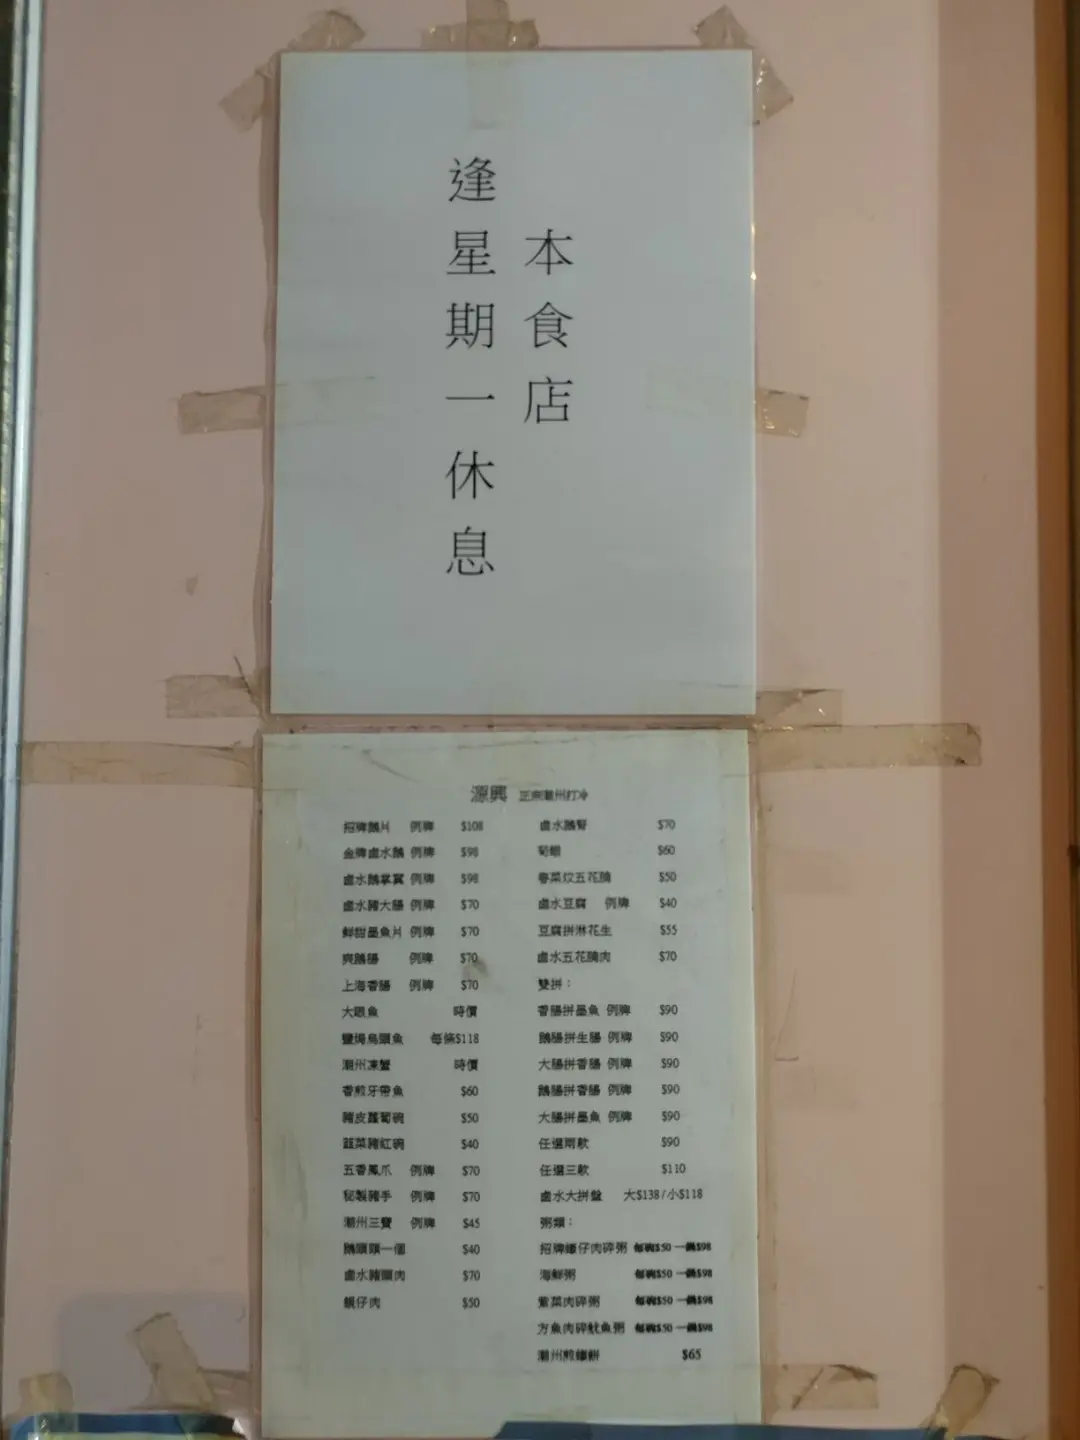 本食店
逢星期一休息
源興 正宗潮州打冷
招牌鵝片 例牌 $108
金牌鹵水鵝 例牌 $98
鹵水鵝掌翼 例牌 $98
鹵水豬大腸 例牌 $70
鮮甜墨魚片 例牌 $70
爽鵝腸 例牌 $70
上海香腸 例牌 $70
大眼魚 時價
鹽焗烏頭魚 每條$118
潮州凍蟹 時價
香煎牙帶魚 $60
豬皮蘿蔔碗 $50
韮菜豬紅碗 $40
五香鳳爪 例牌 $70
秘製豬手 例牌 $70
潮州三寶 例牌 $45
鵝頭頸一個 $40
鹵水豬頭肉 $70
蜆仔肉 $50
鹵水鵝腎 $70
$60
春菜炆五花腩 $50
鹵水豆腐 例牌 $40
豆腐拼淋花生 $55
鹵水五花腩肉 $70
雙拼：
香腸拼墨魚 例牌 $90
鵝腸拼生腸 例牌 $90
大腸拼香腸 例牌 $90
鵝腸拼香腸 例牌 $90
大腸拼墨魚 例牌 $90
任選兩款 $90
任選三款 $110
鹵水大拼盤 大$138/小$118
粥類：
招牌蠔仔肉碎粥 每碗$50 一鍋$98
海鮮粥 每碗$50 一鍋$98
紫菜肉碎粥 每碗$50 一鍋$98
方魚肉碎魷魚粥 每碗$50 一鍋$98
潮州煎蠔餅 $65